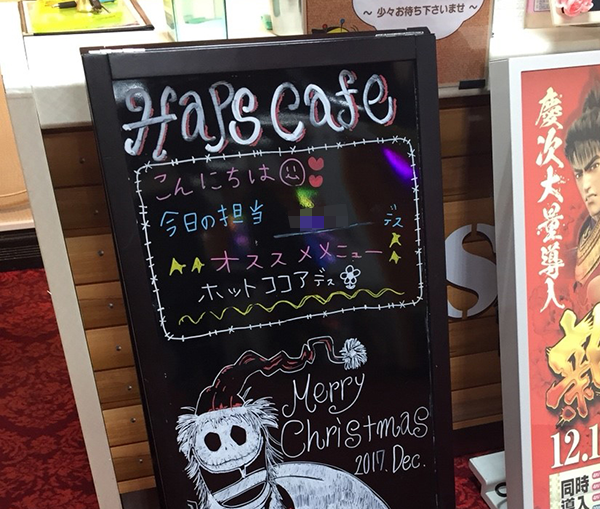 ～ 少々お待ち下さいませ ～
Haps Cafe
こんにちは
今日の担当 デス
オススメメニュー
ホットココアデス
Merry
Christmas
2017. Dec.
S
慶次大量導入
新
12.1
同時
導入